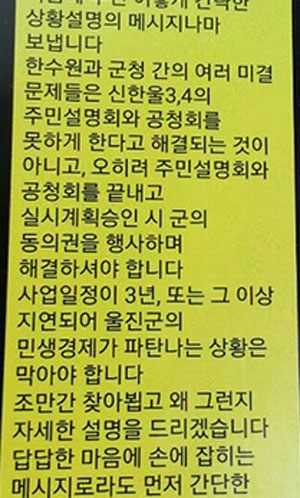 상황설명의 메시지나마
보냅니다
한수원과 군청 간의 여러 미결
문제들은 신한울3,4의
주민설명회와 공청회를
못하게 한다고 해결되는 것이
아니고, 오히려 주민설명회와
공청회를 끝내고
실시계획승인 시 군의
동의권을 행사하며
해결하셔야 합니다
사업일정이 3년, 또는 그 이상
지연되어 울진군의
민생경제가 파탄나는 상황은
막아야 합니다
조만간 찾아뵙고 왜 그런지
자세한 설명을 드리겠습니다
답답한 마음에 손에 잡히는
메시지로라도 먼저 간단한